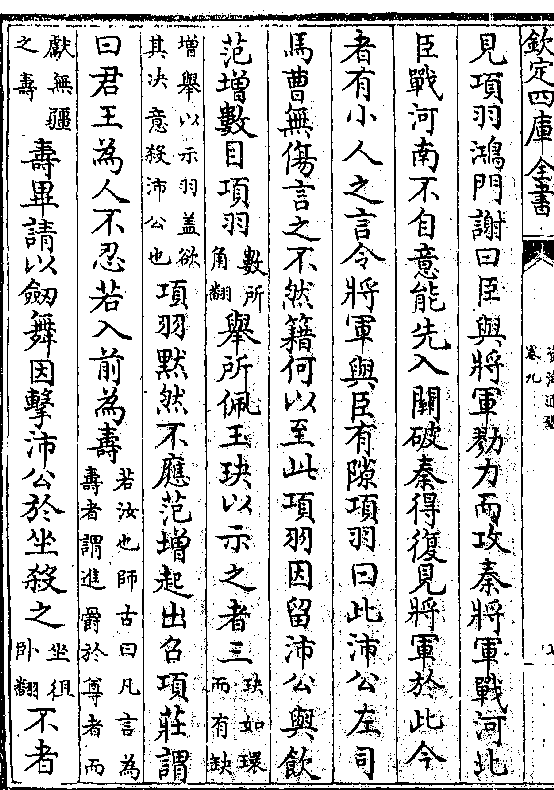 欽定四庫全書
卷九
見項羽鴻門謝曰臣與將軍勠力而攻秦將軍戰河北
臣戰河南不自意能先入關破秦得復見將軍於此今
者有小人之言令將軍與臣有隙項羽曰此沛公左司
馬曹無傷言之不然籍何以至此項羽因留沛公與飲
范增數目項羽數所角翻舉所佩玉玦以示之者三玦如環而有缺
增舉以示羽盖欲其决意殺沛公也項羽默然不應范增起出召項莊謂
曰君王為人不忍若入前為壽若汝也師古曰凡言為壽者謂進爵於尊者而
獻無疆之壽壽畢請以劒舞因擊沛公於坐殺之坐徂卧翻不者